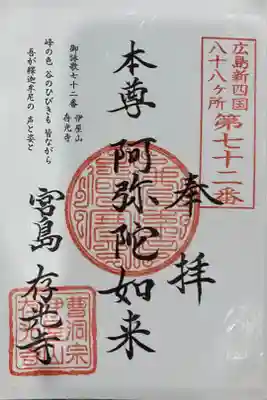 広島新四国
八十八ヶ所
第七十二番
奉拝
本尊 阿弥陀如来
御詠歌七十二番 伊屋山
存光寺
峰の色 谷のひびきも 皆ながら
吾が釋迦牟尼の 声と姿と
宮島 存光寺
曹洞宗